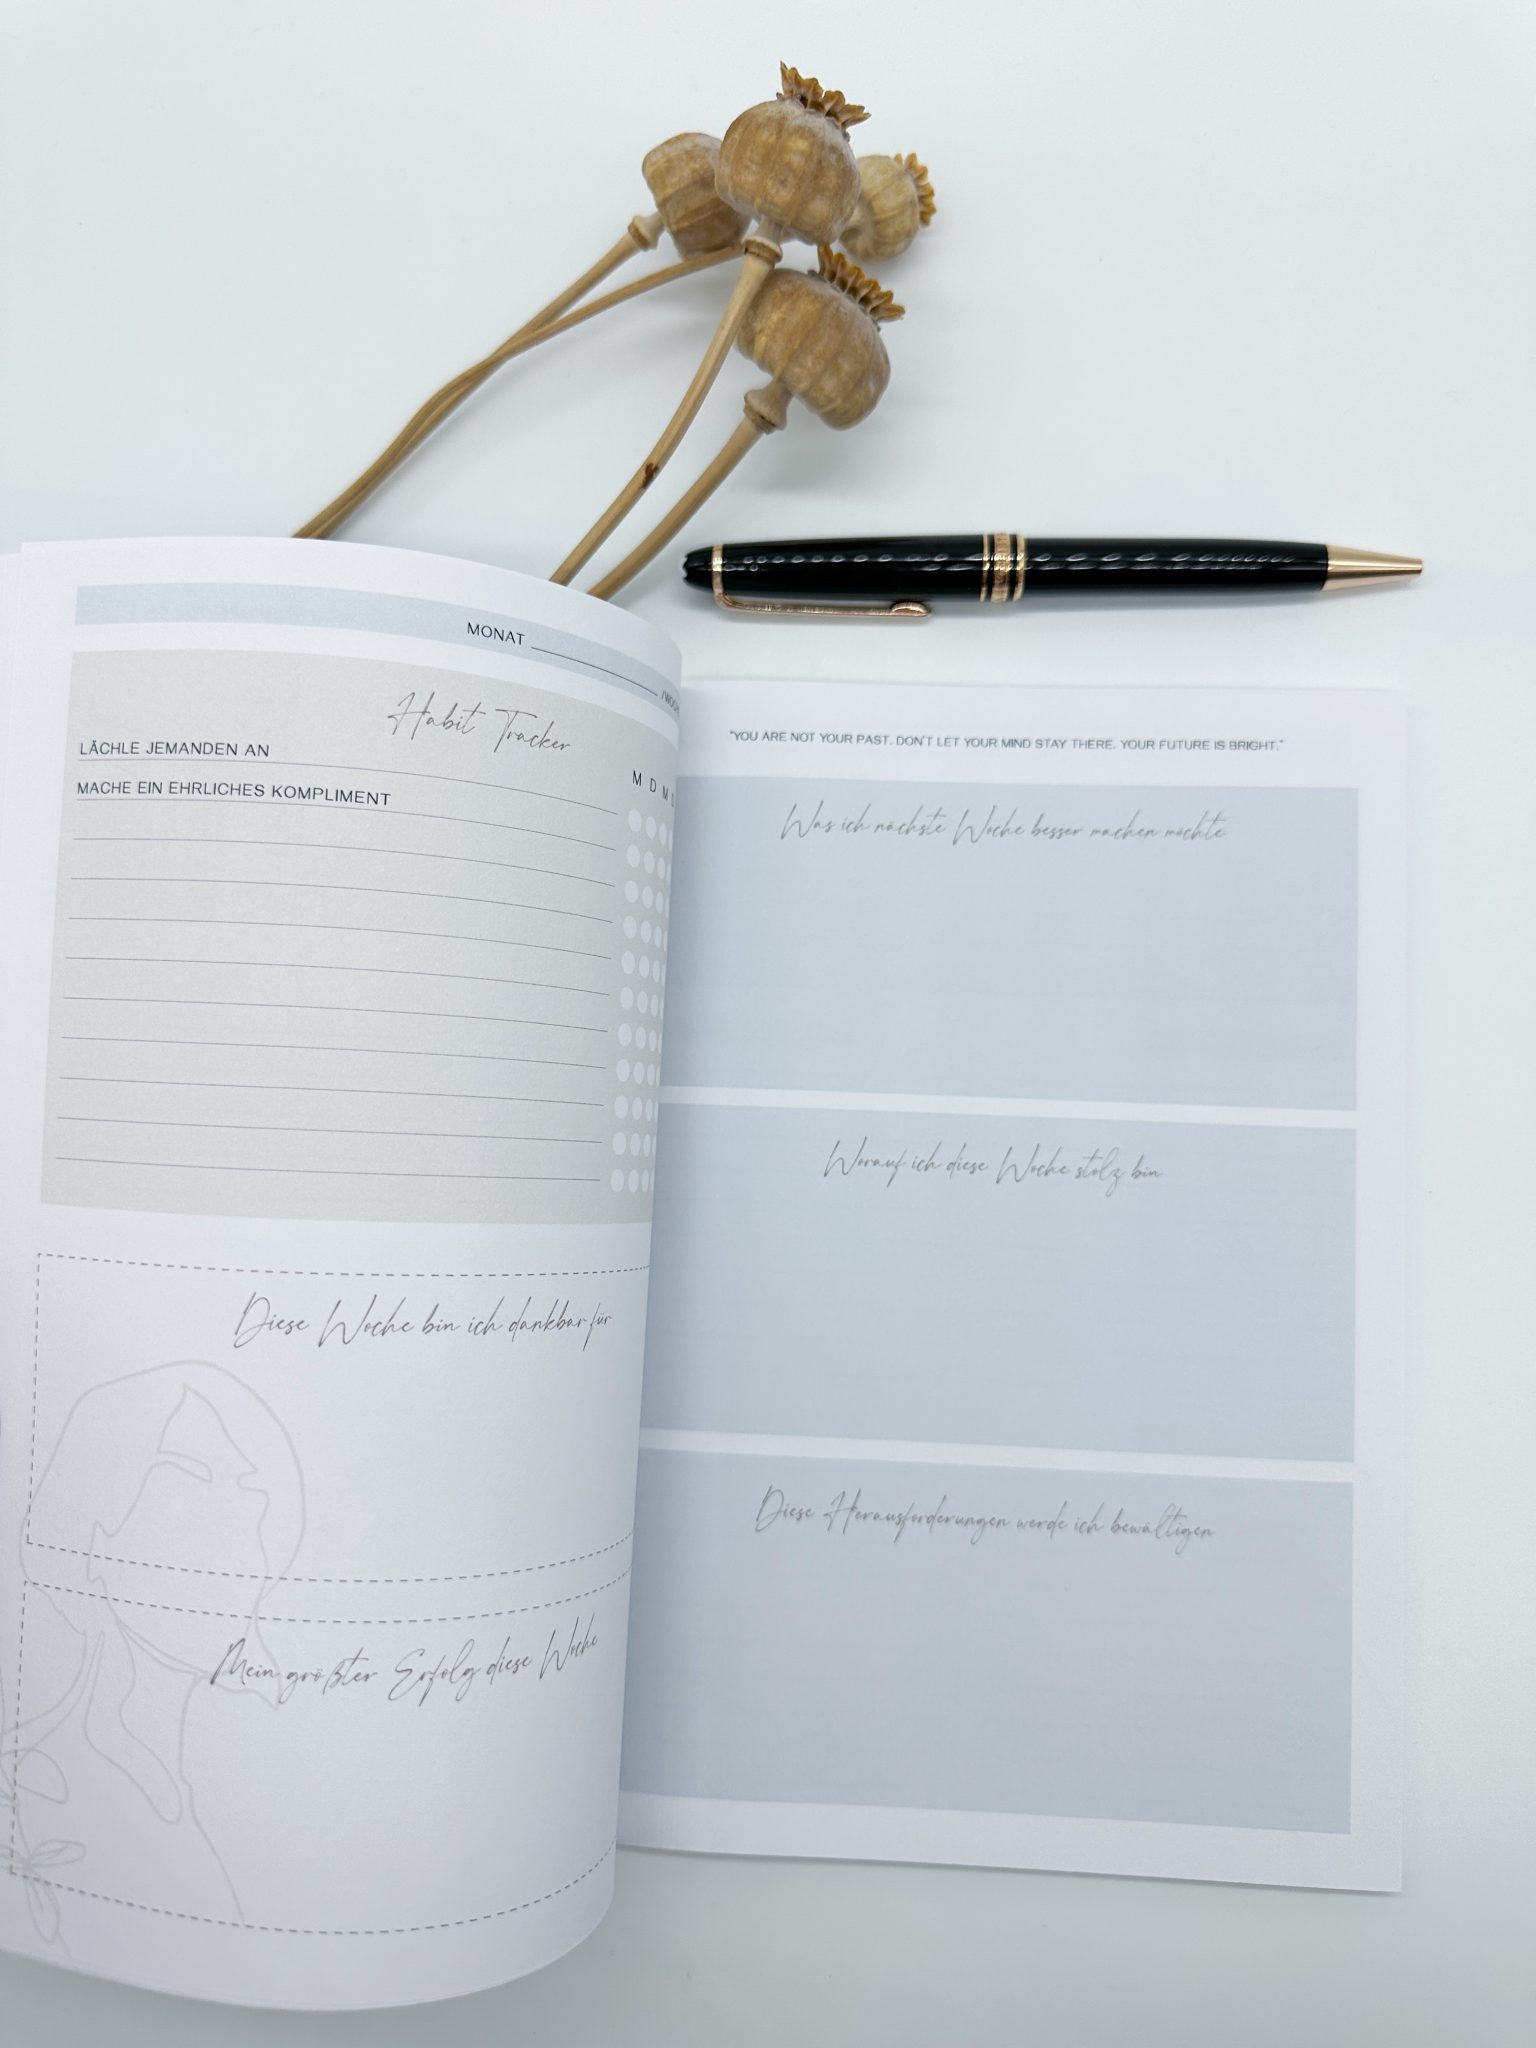 MONAT
Habit Tracker
LÄCHLE JEMANDEN AN
M D M D
MACHE EIN EHRLICHES KOMPLIMENT
Diese Woche bin ich dankbar für
Mein größter Erfolg diese Woche
"YOU ARE NOT YOUR PAST. DON'T LET YOUR MIND STAY THERE. YOUR FUTURE IS BRIGHT."
Was ich nächste Woche besser machen möchte
Worauf ich diese Woche stolz bin
Diese Herausforderungen werde ich bewältigen